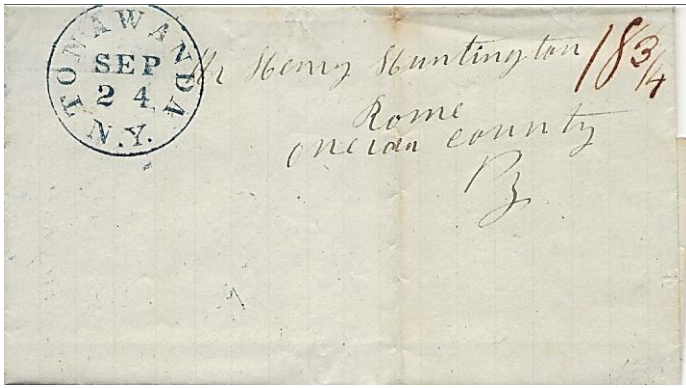 TONAWANDA
SEP
24
N.Y.
Mr Henry Huntington 18 3/4
Rome
Oneida county